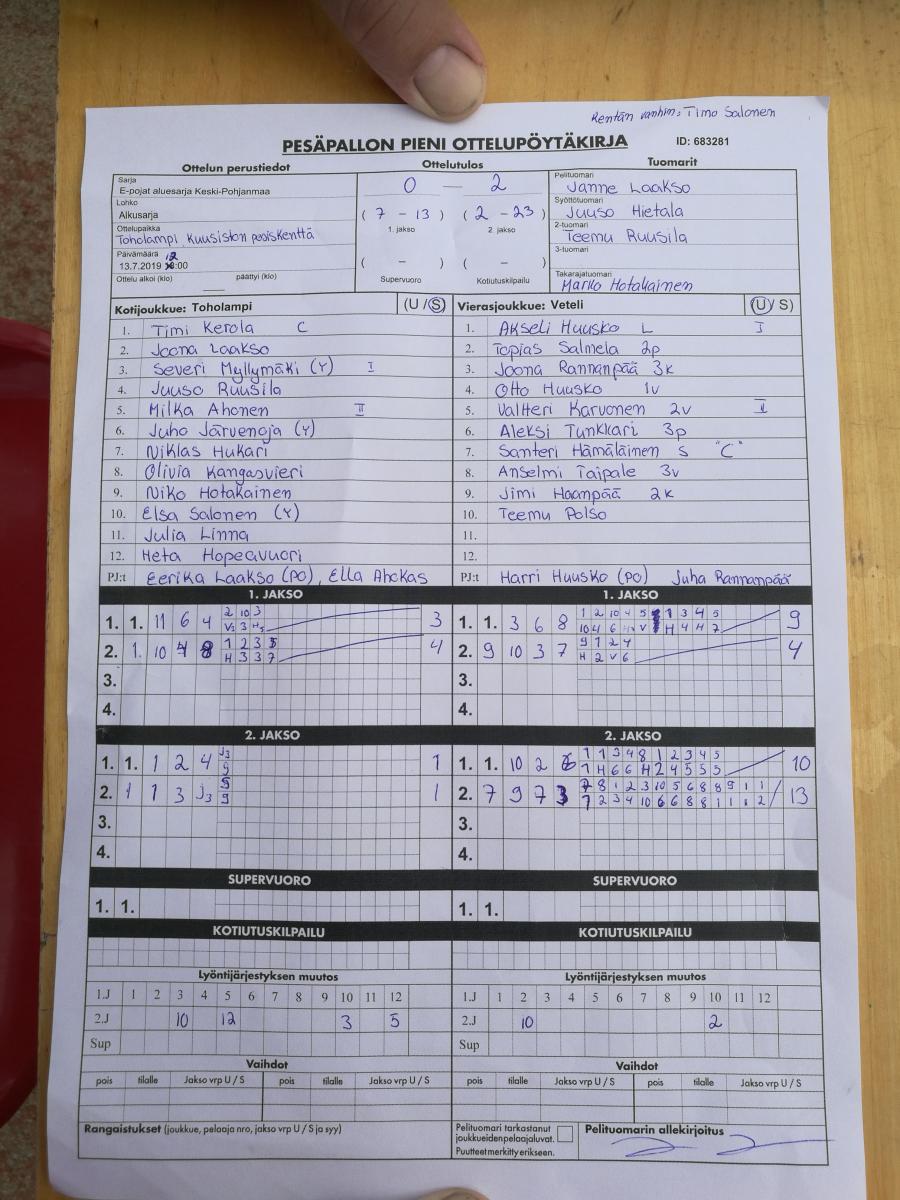 Kentän vanhin: Timo Salonen
PESÄPALLON PIENI OTTELUPÖYTÄKIRJA ID: 683281
Ottelun perustiedot Ottelutulos Tuomarit
Sarja
E-pojat aluesarja Keski-Pohjanmaa
Lohko
Alkusarja
Ottelupaikka
Toholampi Kuusiston pesiskenttä
Päivämäärä
13.7.2019 12:00
Ottelu alkoi (klo) päättyi (klo)
0 — 2
( 7 - 13 ) ( 2 - 23 )
1. jakso 2. jakso
( - ) ( - )
Supervuoro Kotiutuskilpailu
Pelituomari
Janne Laakso
Syöttötuomari
Juuso Hietala
2-tuomari
Teemu Ruusila
3-tuomari
Takarajatuomari
Marko Hotakainen
Kotijoukkue: Toholampi (U / S)
1. Timi Kerola C
2. Joona Laakso
3. Severi Myllymäki (Y) I
4. Juuso Ruusila
5. Milka Ahonen II
6. Juho Järvenoja (Y)
7. Niklas Hukari
8. Olivia Kangasvieri
9. Niko Hotakainen
10. Elsa Salonen (Y)
11. Julia Linna
12. Heta Hopeavuori
PJ:t Eerika Laakso (PO), Ella Ahokas
Vierasjoukkue: Veteli (U / S)
1. Akseli Huusko L I
2. Topias Salmela 2p
3. Joona Rannanpää 3k
4. Otto Huusko 1v
5. Valtteri Karvonen 2v II
6. Aleksi Tunkkari 3p
7. Santeri Hämäläinen S "C"
8. Anselmi Taipale 3v
9. Jimi Haanpää 2k
10. Teemu Polso
11.
12.
PJ:t Harri Huusko (PO) Juha Rannanpää
1. JAKSO
2 10 3
1. 1. 11 6 4 3
1 2 3 5
2. 1 10 4 8 H 3 3 7 4
3.
4.
1. JAKSO
1. 1. 3 6 8 9
9 1 2 4
2. 9 10 3 7 H 2 V 6 4
3.
4.
2. JAKSO
1. 1. 1 2 4 1
2. 1 1 3 1
3.
4.
2. JAKSO
1 1 3 4 8 1 2 3 4 5
1. 1. 10 2 6 1 H 6 6 H 2 4 5 5 5 10
7 8 1 2 3 10 5 6 8 8 9 1 1
2. 7 9 7 3 13
3.
4.
SUPERVUORO
1. 1.
SUPERVUORO
1. 1.
KOTIUTUSKILPAILU
KOTIUTUSKILPAILU
Lyöntijärjestyksen muutos
1.J 1 2 3 4 5 6 7 8 9 10 11 12
2.J 10 12 3 5
Sup
Lyöntijärjestyksen muutos
1.J 1 2 3 4 5 6 7 8 9 10 11 12
2.J 10 2
Sup
Vaihdot
pois tilalle Jakso vrp U / S pois tilalle Jakso vrp U / S
Vaihdot
pois tilalle Jakso vrp U / S pois tilalle Jakso vrp U / S
Rangaistukset (joukkue, pelaaja nro, jakso vrp U / S ja syy)
Pelituomari tarkastanut
joukkueidenpelaajaluvat.
Puutteet merkitty erikseen.
Pelituomarin allekirjoitus